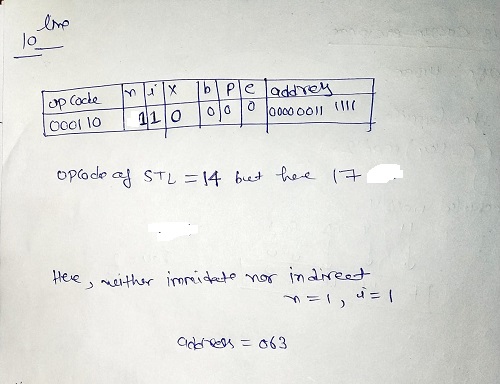 10 line
opcode n i x b p e address
000110 1 1 0 0 0 0 00000011 1111
opcode of STL = 14 but here 17
Here, neither immidate nor indirect
n = 1, i = 1
address = 063